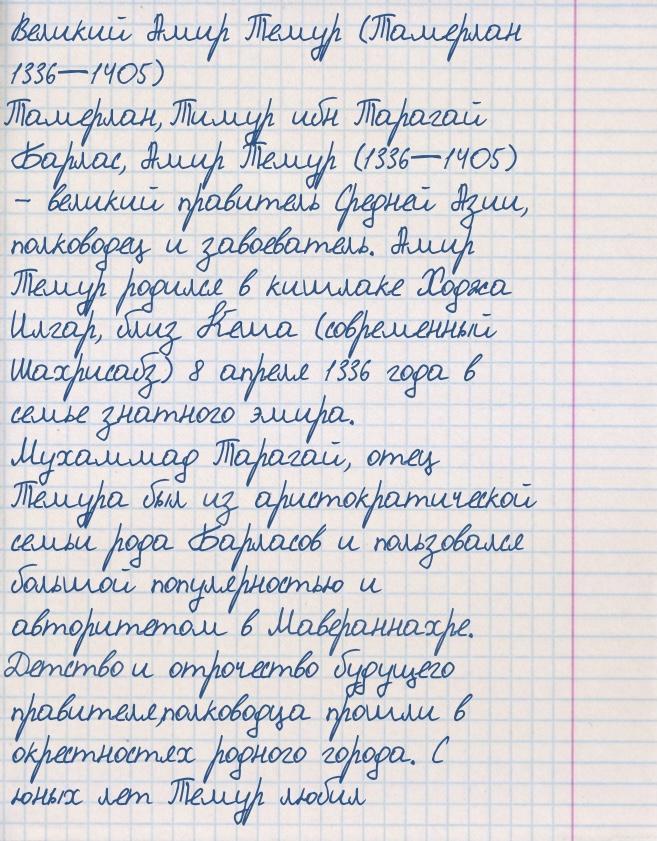 Великий Амир Темур (Тамерлан
1336—1405)
Тамерлан, Тимур ибн Тарагай
Барлас, Амир Темур (1336—1405)
- великий правитель Средней Азии,
полководец и завоеватель. Амир
Темур родился в кишлаке Ходжа
Илгар, близ Кеша (современный
Шахрисабз) 8 апреля 1336 года в
семье знатного эмира.
Мухаммад Тарагай, отец
Темура был из аристократической
семьи рода Барласов и пользовался
большой популярностью и
авторитетом в Мавераннахре.
Детство и отрочество будущего
правителя,полководца прошли в
окрестностях родного города. С
юных лет Темур любил